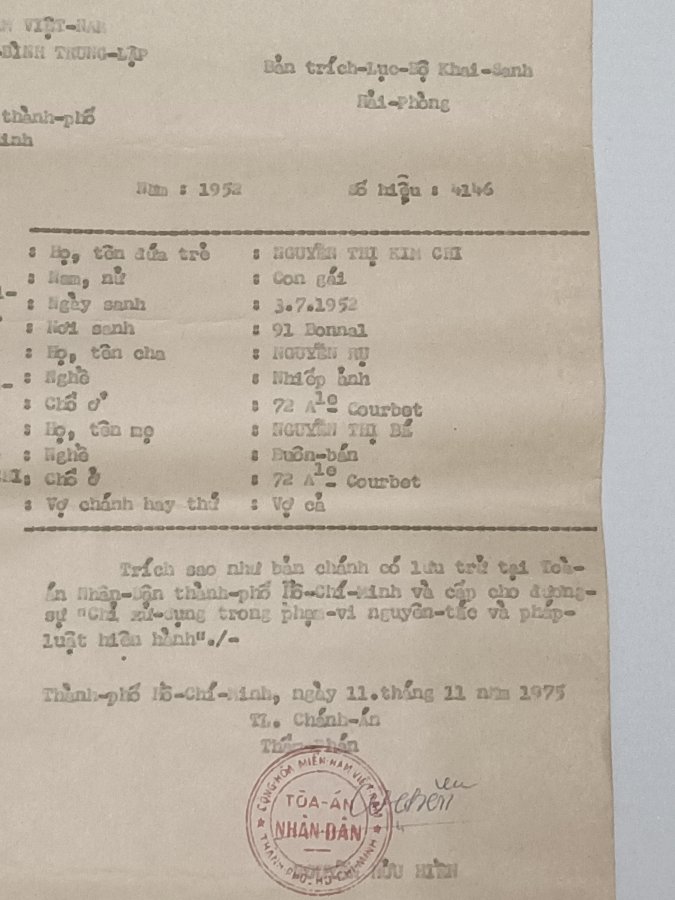 VIỆT-NAM
BÌNH TRUNG-LẬP
Bản trích-Lục-Bộ Khai-Sanh
Hải-Phòng
thành-phố
inh
Năm : 1952
Số hiệu : 4146
: Họ, tên đứa trẻ : NGUYỄN THỊ KIM CHI
: Nam, nữ : Con gái
: Ngày sanh : 3.7.1952
: Nơi sanh : 91 Bonnal
: Họ, tên cha : NGUYỄN RỰ
: Nghề : Nhiếp ảnh
: Chỗ ở : 72 Ale Courbet
: Họ, tên mẹ : NGUYỄN THỊ BÉ
: Nghề : Buôn-bán
: Chỗ ở : 72 Ale Courbet
: Vợ chánh hay thứ : Vợ cả
Trích sao như bản chánh có lưu trữ tại Toà-
Án Nhân-Dân thành-phố Hồ-Chí-Minh và cấp cho đương-
sự "Chỉ xử-dụng trong phạm-vi nguyên-tắc và pháp-
luật hiện hành"./-
Thành-phố Hồ-Chí-Minh, ngày 11.tháng 11 năm 1975
TL. Chánh-Án
Thẩm-Phán
CỘNG-HÒA MIỀN-NAM VIỆT NAM
TÒA-ÁN
NHÂN-DÂN
THÀNH-PHỐ-HỒ-CHÍ-MINH
NGUYỄN HỮU HIỀN